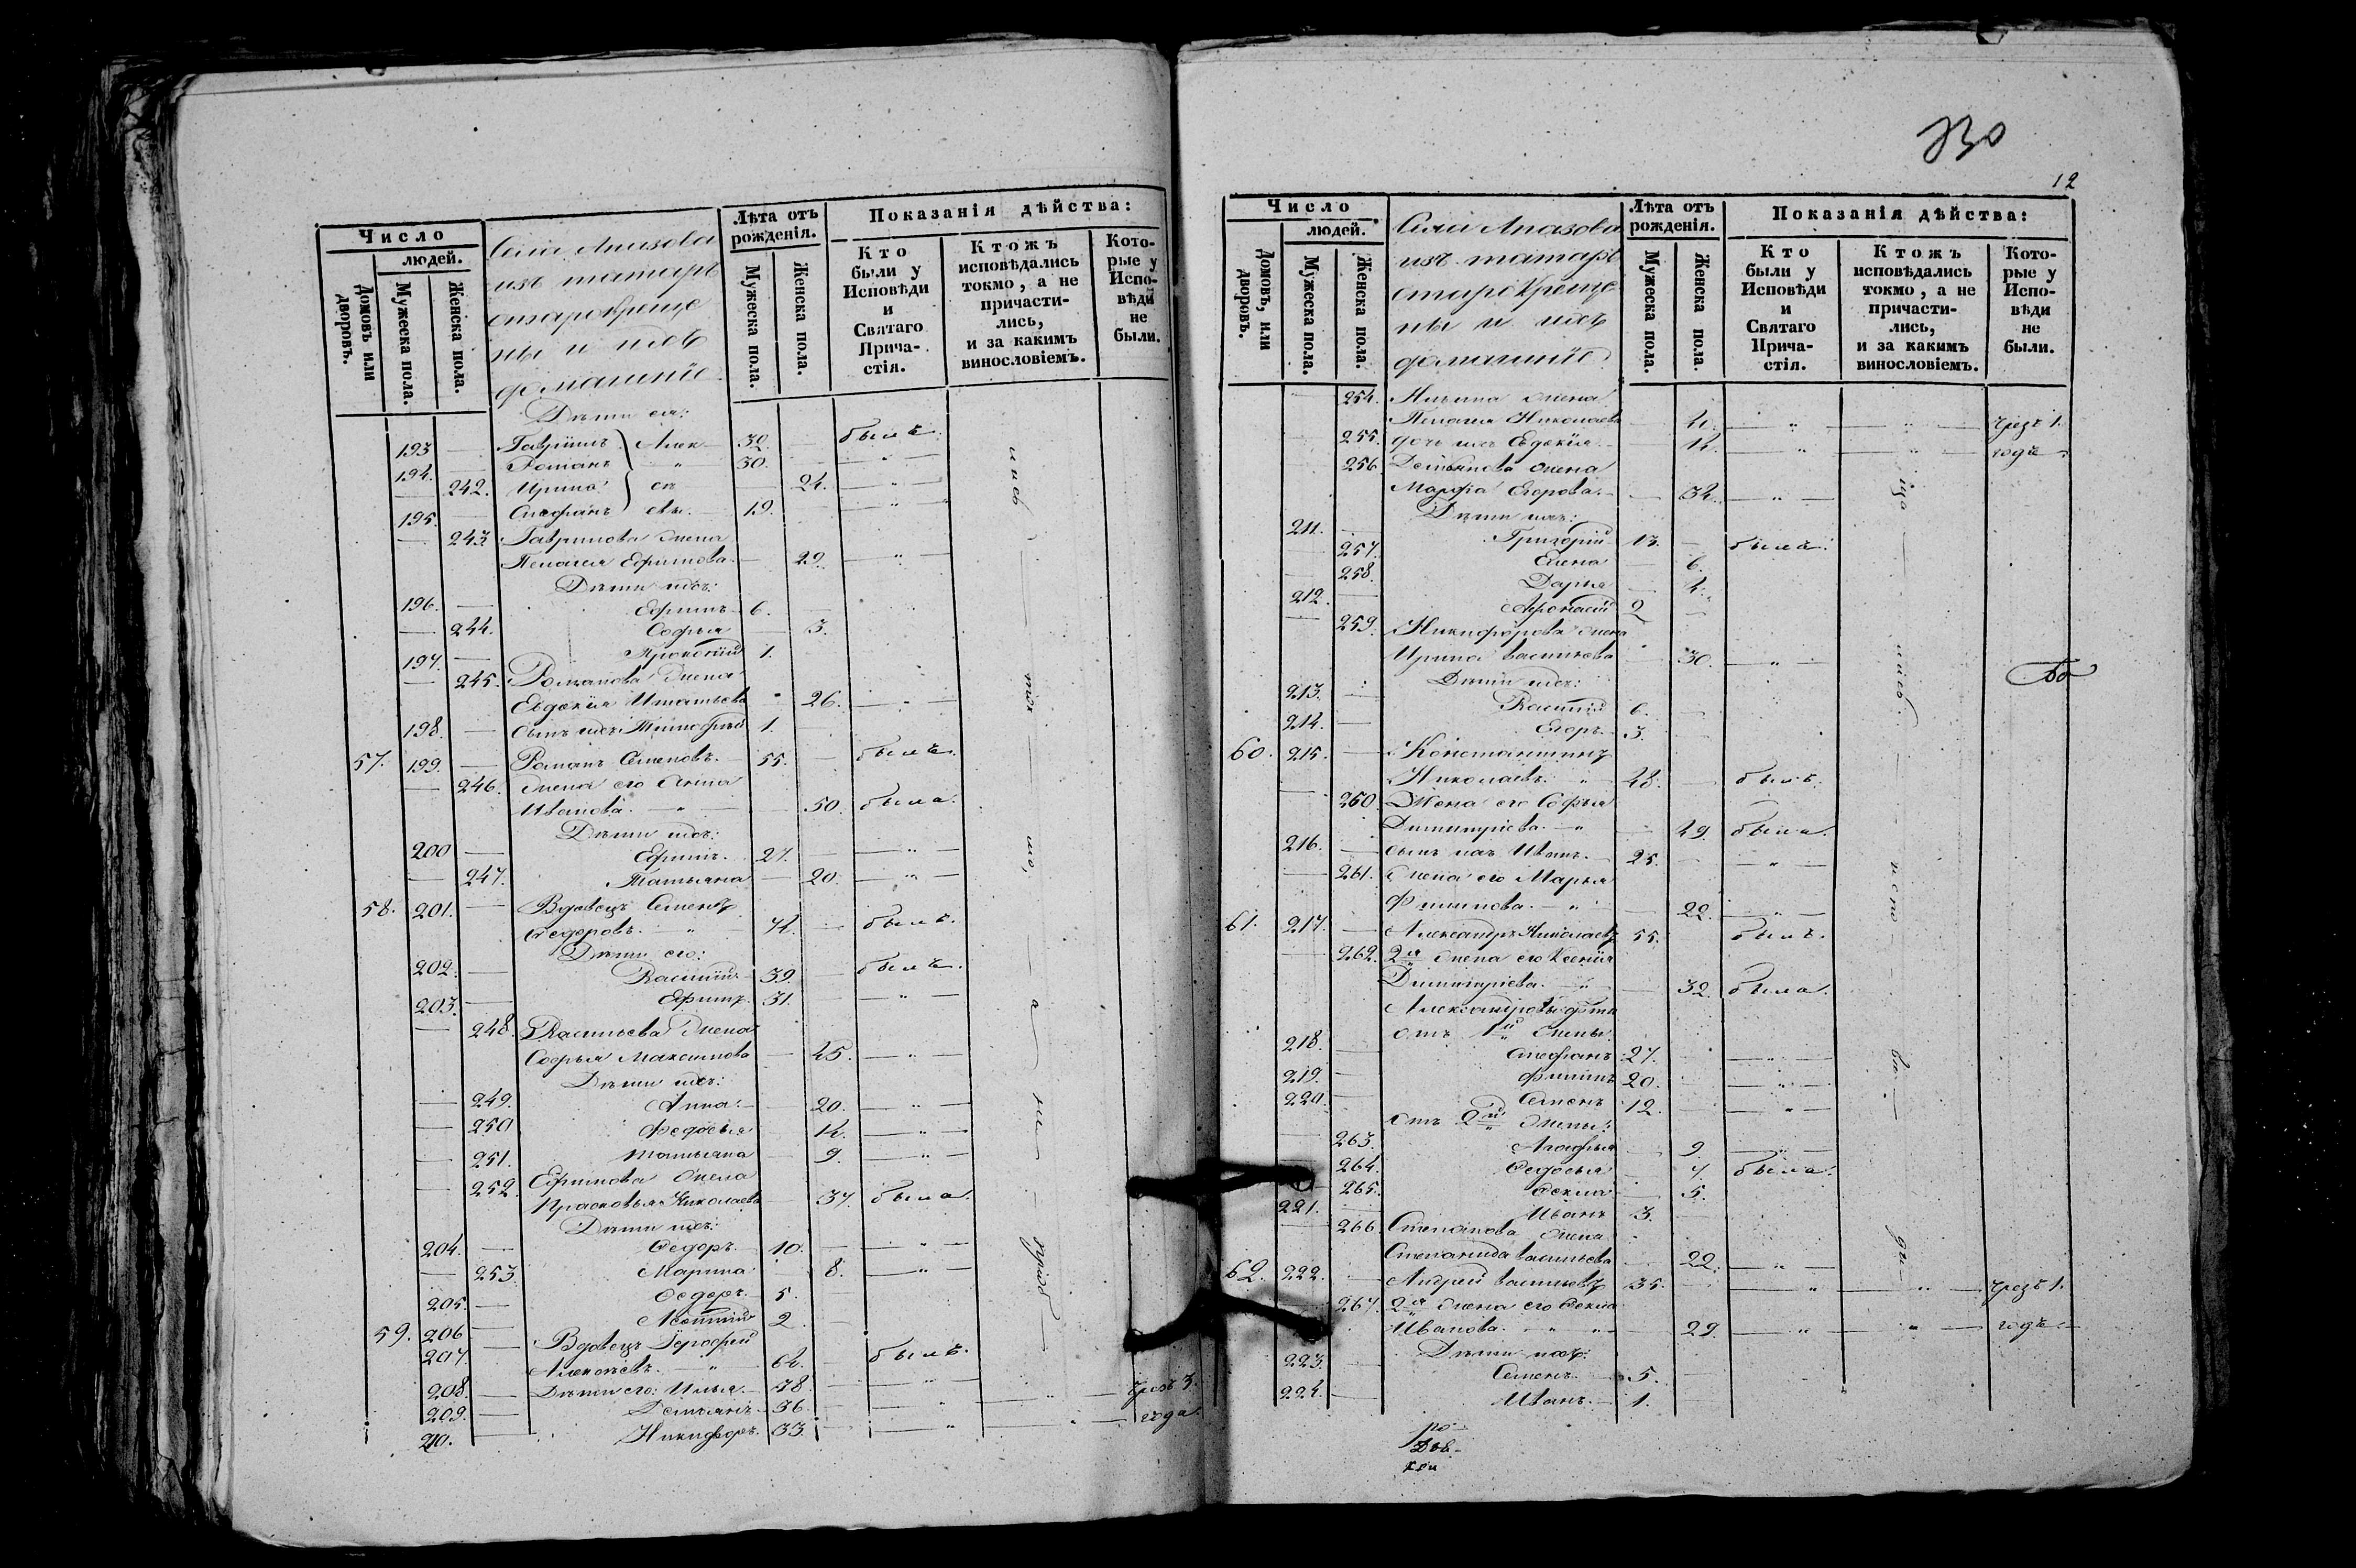 Число
людей.
Домовъ или дворовъ.
Мужеска пола.
Женска пола.
Села Апазова
изъ татаръ
старокреще
ны и ихъ
домашніе
Лѣта отъ рожденія.
Мужеска пола.
Женска пола.
Показанія дѣйства:
Кто были у Исповѣди и Святаго Прича-стія.
Ктожъ исповѣдались токмо, а не причасти-лись, и за какимъ винословіемъ.
Кото-рые у Испо-вѣди не были.
Дѣти ея:
193 — Гавріилъ Алек 32. — былъ.
194. — Романъ " 30. — "
— 242. Ирина — 24. — " —
195. — Стефанъ евы. — 19. — "
— 243 Гаврилова жена
Пелагея Ефимова. — 29. — " —
Дѣти ихъ:
196. — Ефимъ 6. —
— 244. Софья — 3.
197. — Прокопій 1.
— 245. Романова жена
Евдокія Игнатьева " 26. — " —
198. — сынъ ихъ Тимофей 1.
57. 199. — Романъ Семеновъ. — 55. — былъ.
— 246. жена его Анна
Иванова. — " — 50. была.
Дѣти ихъ:
200 — Ефимъ. 27. — " —
— 247. Татьяна — 20. — " —
58. 201. — Вдовецъ Семенъ
Федоровъ. — " 74. — былъ.
Дѣти его:
202. — Василій 39. — былъ.
203. — Ефимъ. 31. — " —
— 248. Васильева жена
Софья Максимова — 45. — " —
Дѣти ихъ:
— 249. Анна. — 20. — " —
— 250 Федосья — 14. — " —
— 251. Татьяна — 9. — " —
— 252. Ефимова жена
Прасковья Николаева — 37. была.
Дѣти ихъ:
204. — Федоръ. — 10. — " —
— 253 Марина — 8. — " —
205. — Федоръ. — 5.
206 — 2. —
59. 207. Вдовецъ Ерофей
Алексѣевъ. — " 64. — былъ.
208. — Дѣти его: Илья. — 38. — " — чрезъ 3.
209. — Демьянъ. 36. — " — года.
210. — Никифоръ. 33. — "
730
12
Число
людей.
Домовъ, или дворовъ.
Мужеска пола.
Женска пола.
Села Апазова
изъ татаръ
старокреще
ны и ихъ
домашніе
Лѣта отъ рожденія.
Мужеска пола.
Женска пола.
Показанія дѣйства:
Кто были у Исповѣди и Святаго Прича-стія.
Ктожъ исповѣдались токмо, а не причасти-лись, и за какимъ винословіемъ.
Кото-рые у Испо-вѣди не были.
254. Ильина жена
Пелагея Николаева — " — чрезъ 1.
255. дочь ихъ Евдокія — 14. — " — годъ.
256 Демьянова жена
Марфа Егорова. — 34. — " —
Дѣти ихъ:
211. — Григорій 13. — былъ.
— 257. Елена — 6.
— 258. Дарья — 4.
212. — Афонасій 2 —
— 259. Никифорова жена
Ирина Васильева — 30. — " —
Дѣти ихъ:
213. — Василій 6. —
214. — Егоръ. 3.
60. 215. — Константинъ
Николаевъ. " 48. — былъ.
— 260. Жена его Софья
Димитріева. — " — 49. была.
216. — сынъ ихъ Иванъ. 25. — " —
— 261. жена его Марья
Филипова. — " — 22. — " —
61. 217. — Александръ Николаевъ 55. былъ.
— 262. 2я жена его Ксенія
Димитріева. — " — 32. была.
Александровы дѣти
отъ 1й жены.
218. — Стефанъ 27. — " —
219. — Филипъ 20. — " —
220. — Семенъ 12. — " —
отъ 2й жены:
263. Агафья — 9. — " —
264. Федосья — 7. была.
265. Фекла — 5.
221. — Иванъ 3. —
266 Степанова жена
Степанида Васильева — 22. — " —
62. 222. — Андрей Васильевъ 35. — " — " — чрезъ 1.
— 267. 2я жена его Фекла
Иванова. — " " — 29. — " — " — годъ.
Дѣти ихъ:
223. — Семенъ. 5. —
224. — Иванъ. — 1. —